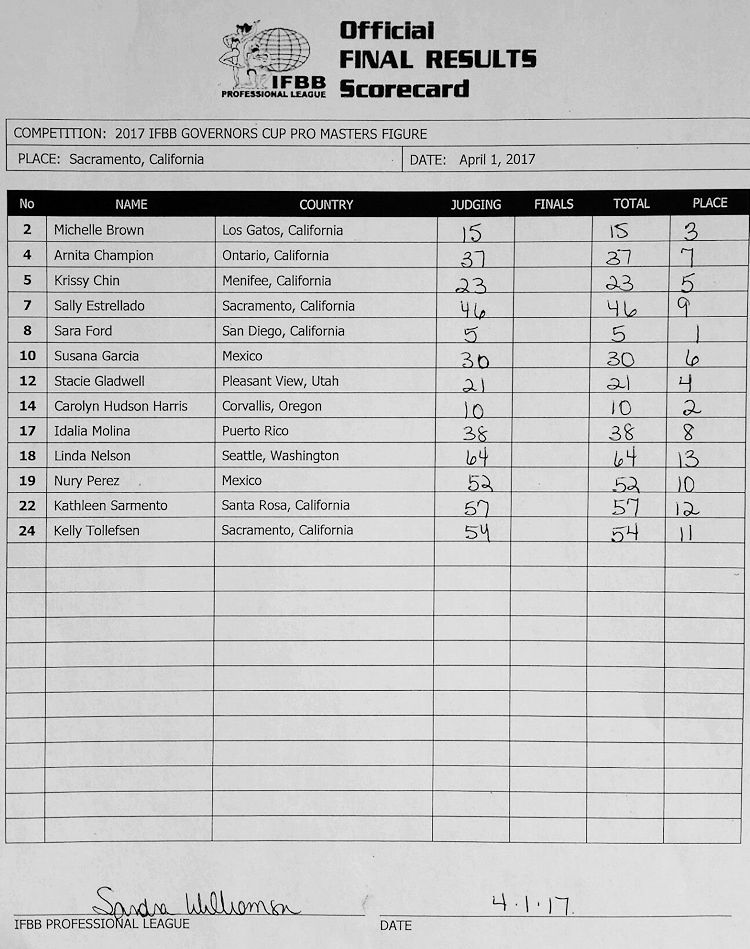 Official
FINAL RESULTS
Scorecard
IFBB
PROFESSIONAL LEAGUE
COMPETITION: 2017 IFBB GOVERNORS CUP PRO MASTERS FIGURE
PLACE: Sacramento, California DATE: April 1, 2017
No NAME COUNTRY JUDGING FINALS TOTAL PLACE
2 Michelle Brown Los Gatos, California 15 15 3
4 Arnita Champion Ontario, California 37 37 7
5 Krissy Chin Menifee, California 23 23 5
7 Sally Estrellado Sacramento, California 46 46 9
8 Sara Ford San Diego, California 5 5 1
10 Susana Garcia Mexico 30 30 6
12 Stacie Gladwell Pleasant View, Utah 21 21 4
14 Carolyn Hudson Harris Corvallis, Oregon 10 10 2
17 Idalia Molina Puerto Rico 38 38 8
18 Linda Nelson Seattle, Washington 64 64 13
19 Nury Perez Mexico 52 52 10
22 Kathleen Sarmento Santa Rosa, California 57 57 12
24 Kelly Tollefsen Sacramento, California 54 54 11
Sandra Williamson 4.1.17.
IFBB PROFESSIONAL LEAGUE DATE